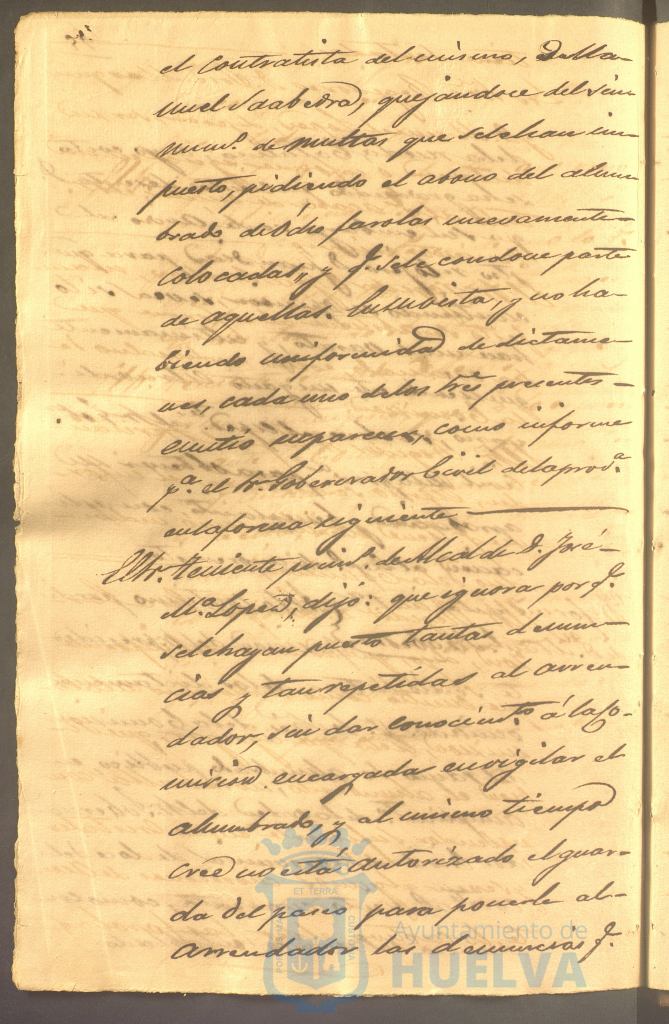 el contratista del mismo, D. Ma-
nuel Saabedra, quejandoce del sin
num.º de multas que se le han im-
puesto, pidiendo el abono del alum-
brado de 8 dho farolas nuevamente
colocadas, y q.e se le condone parte
de aquellas. En su vista, y no ha-
biendo uniformidad de dictame-
nes, cada uno de los tres presentes
emitió su parecer, como informe
p.ª el Sr. Gobernador Civil de la prov.ª
en la forma siguiente
El Sr. Teniente prim.º de Alcalde D. José
M.ª Lopez, dijo: que ignora por q.e
se le hayan puesto tantas denun-
cias y tan repetidas al arren-
dador, sin dar conocim.to á la Co-
mision encargada en vigilar el
alumbrado, y al mismo tiempo
cree no está autorizado el guar-
da del paseo para ponerle al
arrendador las denuncias q.e
ET TERRA
Ayuntamiento de
HUELVA